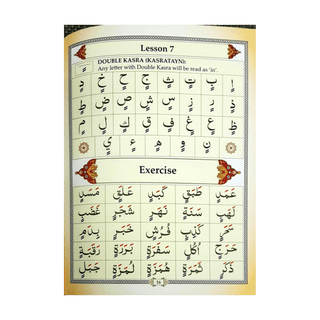 Lesson 7
DOUBLE KASRA (KASRATAYN):
Any letter with Double Kasra will be read as 'in'.
اٍ بٍ تٍ ثٍ جٍ حٍ خٍ دٍ
ذٍ رٍ زٍ سٍ شٍ صٍ ضٍ طٍ
ظٍ عٍ غٍ فٍ قٍ كٍ لٍ مٍ
نٍ وٍ هٍ ءٍ يٍ
Exercise
عَمَدٍ طَبَقٍ كَبَدٍ عَلَقٍ مَسَدٍ
لَهَبٍ سَنَةٍ نَهَرٍ شَجَرٍ غَضَبٍ
سَحَرٍ كَذِبٍ فُرُشٍ خَبَرٍ بِدَمٍ
حَرَجٍ اُكُلٍ سَفَرَةٍ بَرَرَةٍ رَقَبَةٍ
ذَكَرٍ ثَمَرَةٍ هُمَزَةٍ لُمَزَةٍ جَبَلٍ